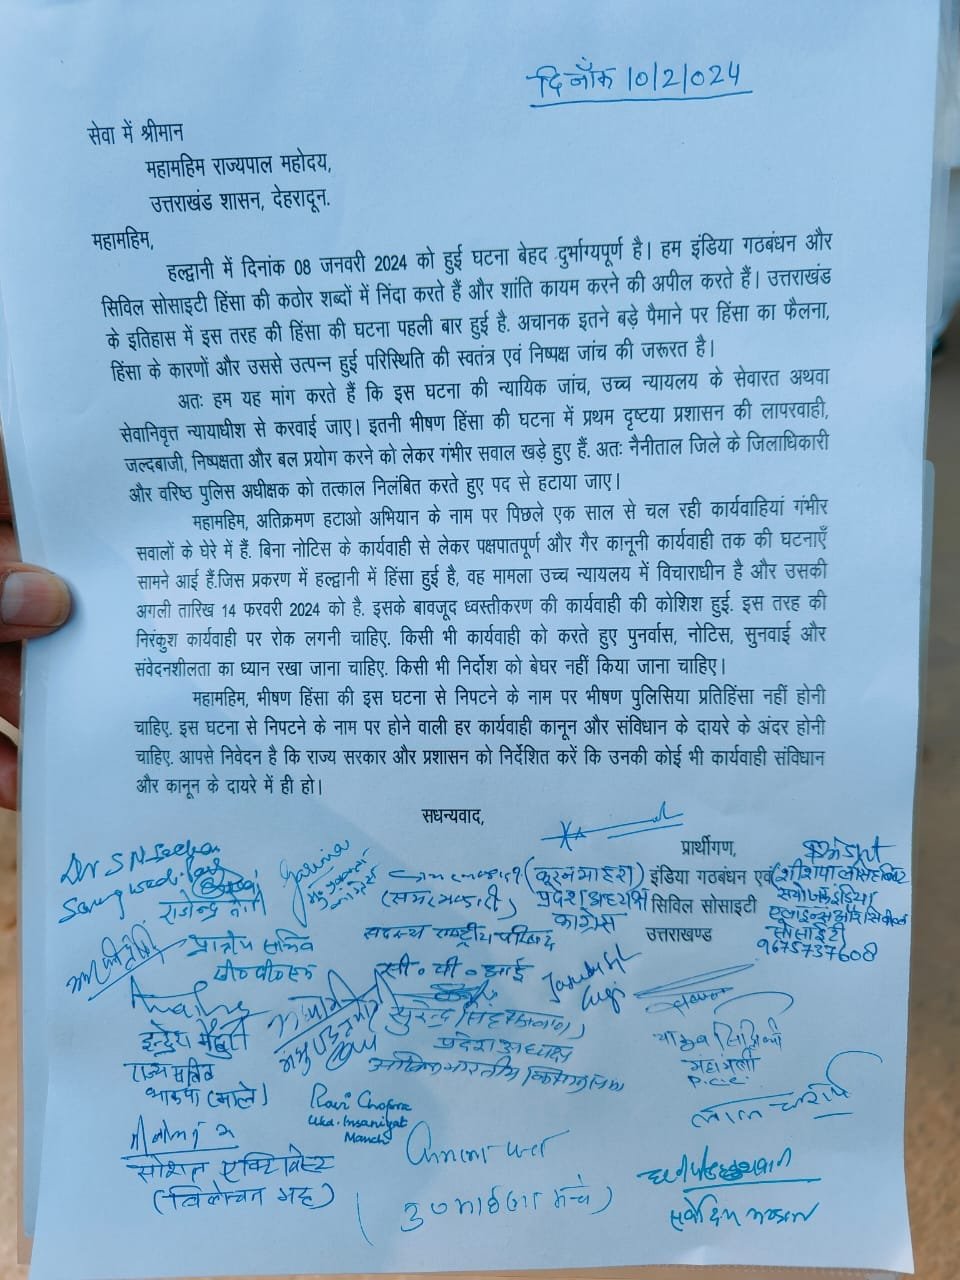 दिनाँक 10/2/024
सेवा में श्रीमान
महामहिम राज्यपाल महोदय,
उत्तराखंड शासन, देहरादून.
महामहिम,
हल्द्वानी में दिनांक 08 जनवरी 2024 को हुई घटना बेहद दुर्भाग्यपूर्ण है। हम इंडिया गठबंधन और
सिविल सोसाइटी हिंसा की कठोर शब्दों में निंदा करते हैं और शांति कायम करने की अपील करते हैं। उत्तराखंड
के इतिहास में इस तरह की हिंसा की घटना पहली बार हुई है. अचानक इतने बड़े पैमाने पर हिंसा का फैलना,
हिंसा के कारणों और उससे उत्पन्न हुई परिस्थिति की स्वतंत्र एवं निष्पक्ष जांच की जरूरत है।
अतः हम यह मांग करते हैं कि इस घटना की न्यायिक जांच, उच्च न्यायलय के सेवारत अथवा
सेवानिवृत्त न्यायाधीश से करवाई जाए। इतनी भीषण हिंसा की घटना में प्रथम दृष्टया प्रशासन की लापरवाही,
जल्दबाजी, निष्पक्षता और बल प्रयोग करने को लेकर गंभीर सवाल खड़े हुए हैं. अतः नैनीताल जिले के जिलाधिकारी
और वरिष्ठ पुलिस अधीक्षक को तत्काल निलंबित करते हुए पद से हटाया जाए।
महामहिम, अतिक्रमण हटाओ अभियान के नाम पर पिछले एक साल से चल रही कार्यवाहियां गंभीर
सवालों के घेरे में हैं. बिना नोटिस के कार्यवाही से लेकर पक्षपातपूर्ण और गैर कानूनी कार्यवाही तक की घटनाएँ
सामने आई हैं.जिस प्रकरण में हल्द्वानी में हिंसा हुई है, वह मामला उच्च न्यायलय में विचाराधीन है और उसकी
अगली तारिख 14 फरवरी 2024 को है. इसके बावजूद ध्वस्तीकरण की कार्यवाही की कोशिश हुई. इस तरह की
निरंकुश कार्यवाही पर रोक लगनी चाहिए. किसी भी कार्यवाही को करते हुए पुनर्वास, नोटिस, सुनवाई और
संवेदनशीलता का ध्यान रखा जाना चाहिए. किसी भी निर्दोश को बेघर नहीं किया जाना चाहिए।
महामहिम, भीषण हिंसा की इस घटना से निपटने के नाम पर भीषण पुलिसिया प्रतिहिंसा नहीं होनी
चाहिए. इस घटना से निपटने के नाम पर होने वाली हर कार्यवाही कानून और संविधान के दायरे के अंदर होनी
चाहिए. आपसे निवेदन है कि राज्य सरकार और प्रशासन को निर्देशित करें कि उनकी कोई भी कार्यवाही संविधान
और कानून के दायरे में ही हो।
सधन्यवाद,
प्रार्थीगण,
इंडिया गठबंधन एवं
सिविल सोसाइटी
उत्तराखण्ड
Dr S N
राजेन्द्र नेगी
(समर भण्डारी)
सदस्य राष्ट्रीय परिषद
सी. पी. आई
प्रदेश अध्यक्ष
कांग्रेस
सोसाइटी
9675737608
इन्द्रेश मैखुरी
राज्य सचिव
भाकपा (माले)
प्रदेश अध्यक्ष
महामंत्री
P.C.C.
Ravi Chopra
Ukd. Insaniyat
Manch
सोशल एक्टिविस्ट